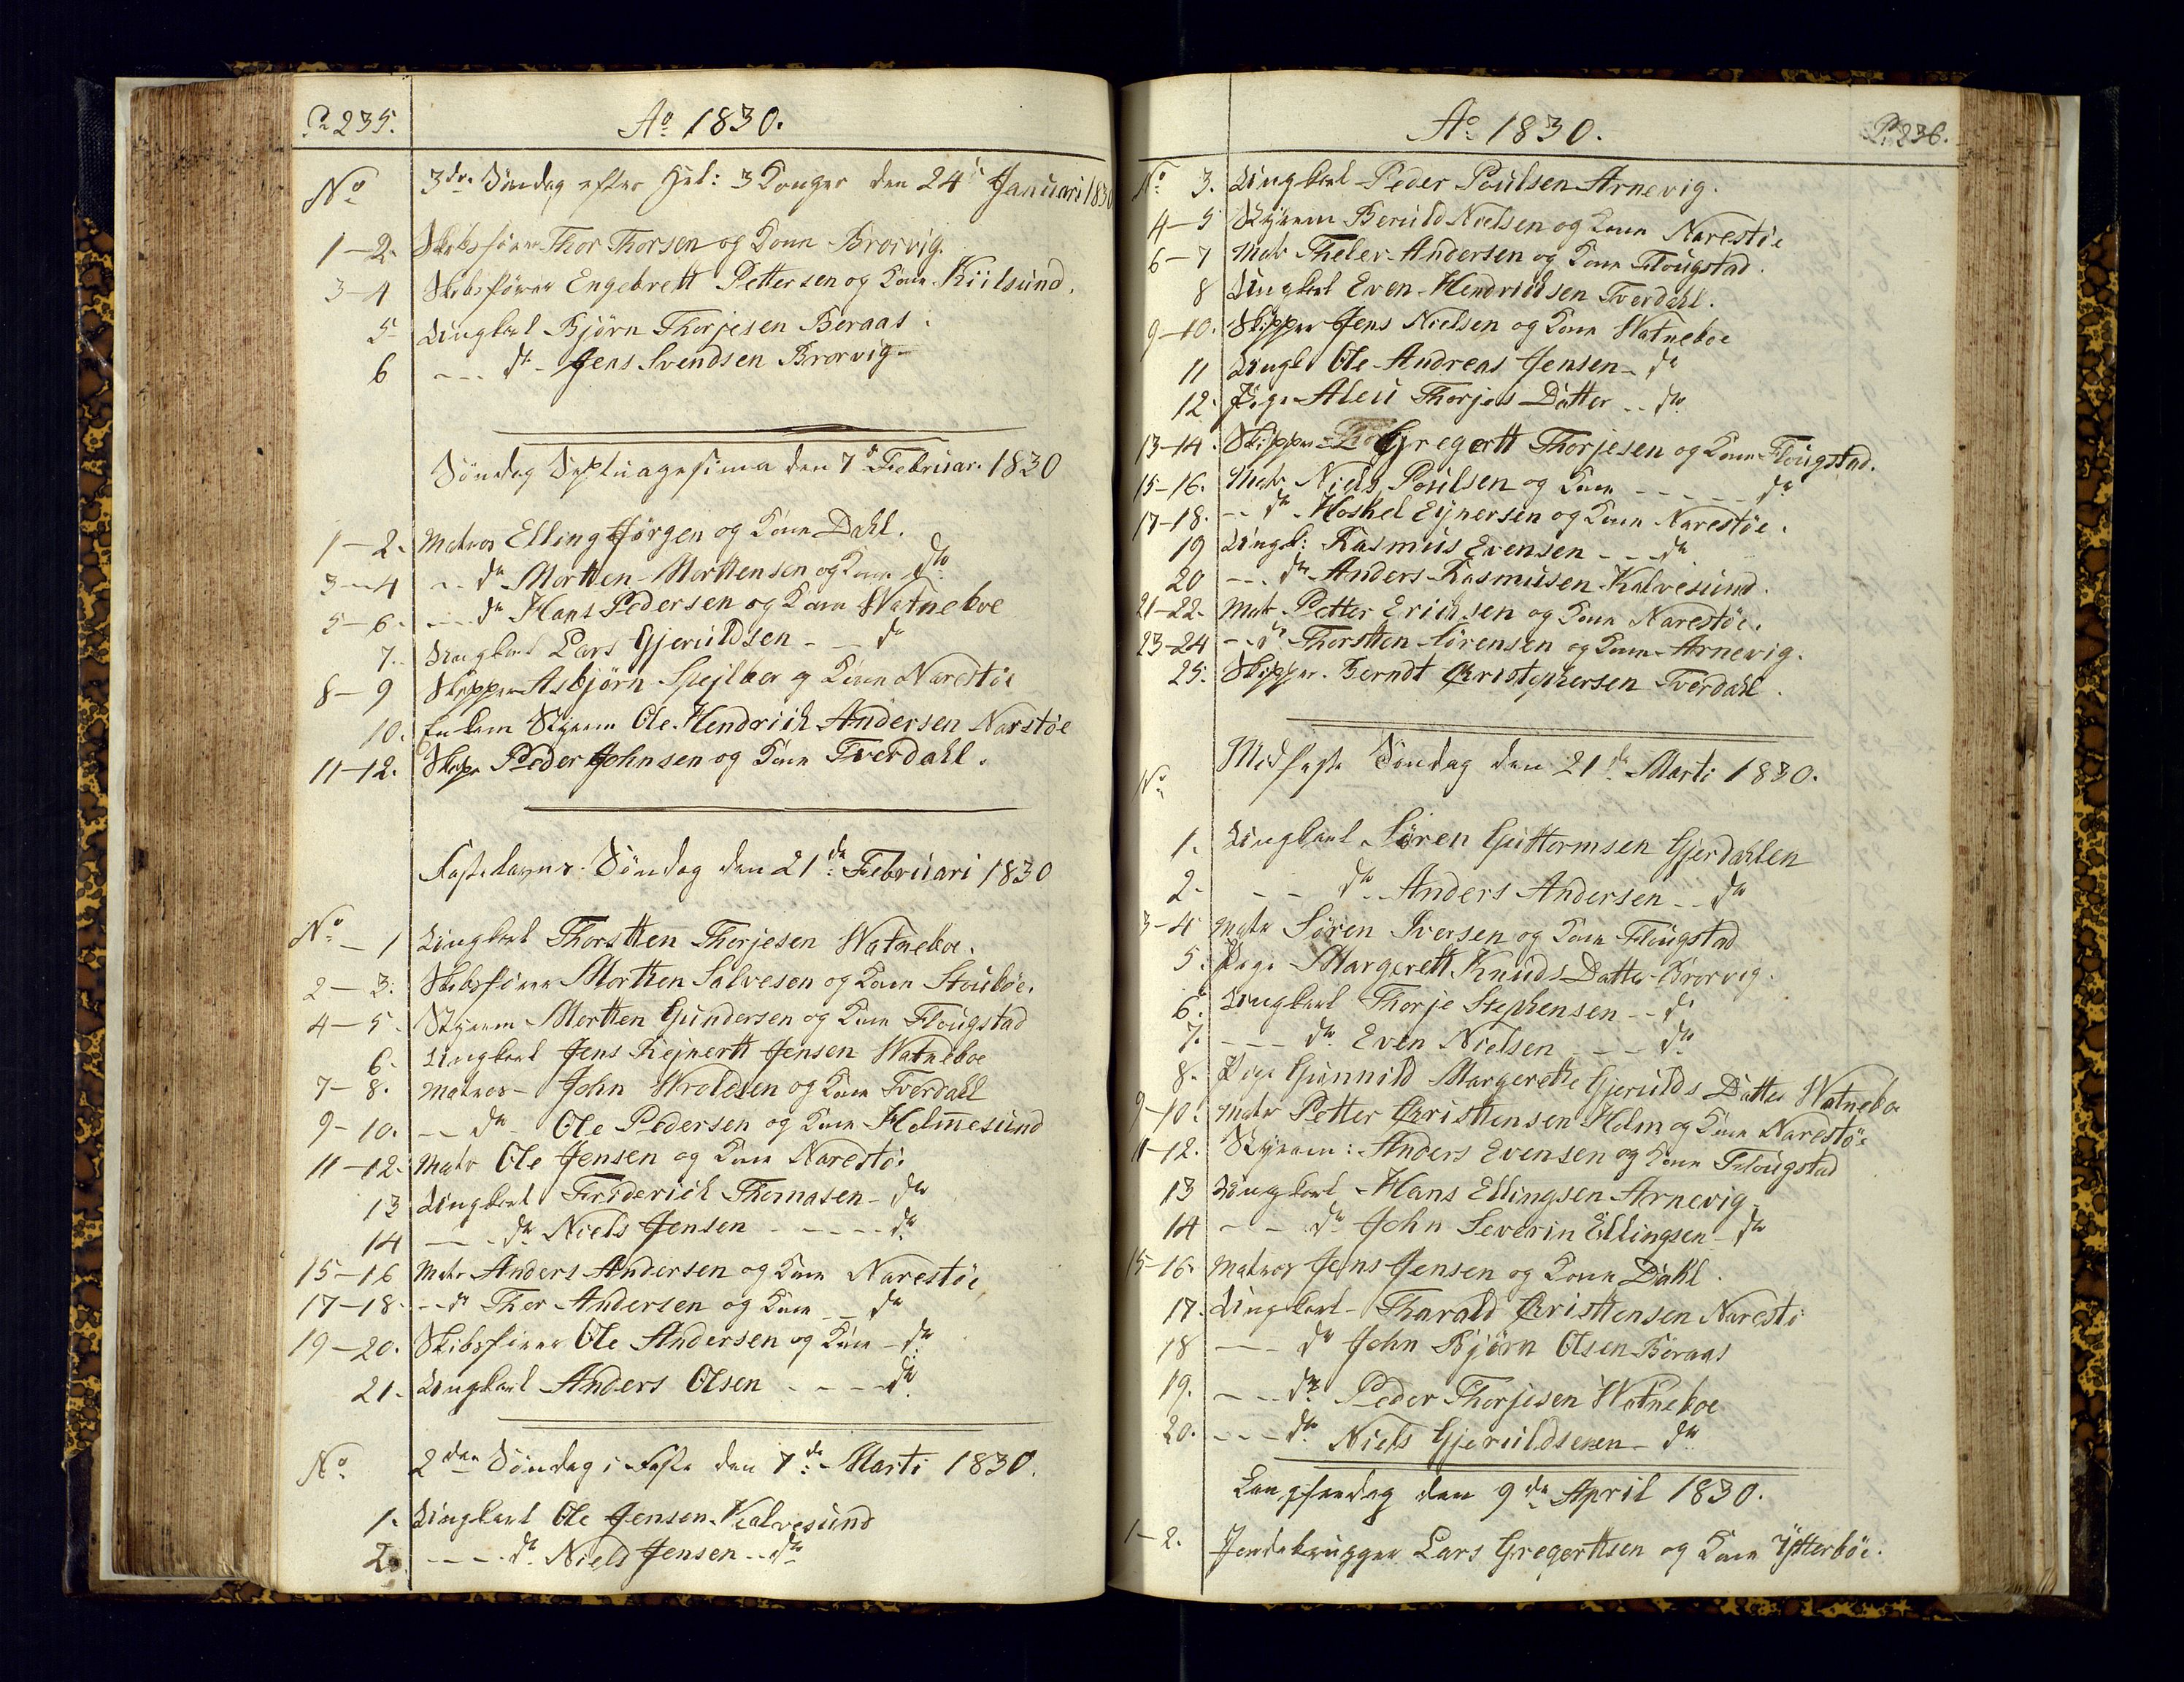 P. 235.
Ao 1830.
No 3die Søndag efter Hel: 3 Konger den 24de Januari 1830
1-2. Skibsfører Thor Thorsen og Kone Brorvig.
3-4 Skibsfører Engebrett Pettersen og Kone Kiilsund.
5 Ungkarl Bjørn Thorjesen Beraas.
6 --- do Jens Svendsen Brorvig-
Søndag Septuagesima den 7de Februar. 1830
1-2. Matros Elling Jørgen og Kone Dahl.
3-4 -- do Mortten Morttensen og Kone do
5-6. --- do Hans Pedersen og Kone Watneboe
7. Ungkarl Lars Gjeruldsen - - do
8-9 Skipper Asbjørn Spejlber og Kone Narestøe
10. Enkem Styrm Ole Hendrich Andersen Narstøe
11-12. Skip Peder Johnsen og Kone Tverdahl.
Fastelavns Søndag den 21de Februari 1830
No - 1 Ungkarl Thorstten Thorjesen Watneboe.
2-3. Skibsfører Mortten Salvesen og Kone Stoubøe.
4-5. Styrm Mortten Gundersen og Kone Flougstad
6. Ungkarl Jens Rejnertt Jensen Watneboe
7-8. Matros - John Wroldsen og Kone Tverdahl
9-10. -- do - Ole Pedersen og Kone Holmesund
11-12. Matr Ole Jensen og Kone Narestøe
13 Ungkarl Friderich Thomasen - do
14 --- do Niels Jensen ----- do
15-16 Matr Anders Andersen og Kone Narestøe
17-18. -- do Thor Andersen og Kone -- do
19-20. Skibsfører Ole Andersen og Kone - do
21. Ungkarl Anders Olsen ---- do
No 2den Søndag i Faste den 7de Marti 1830.
1. Ungkarl Ole Jensen Kalvesund
2. ---- do Niels Jensen -- do
Ao 1830.
P. 236.
No 3. Ungkarl Peder Poulsen Arnevig.
4-5 Styrm Beruld Nielsen og Kone Narestøe
6-7 Matr Theler Andersen og Kone Flougstad.
8 Ungkarl Even Hendrichsen Tverdahl.
9-10. Skipper Jens Nielsen og Kone Watneboe
11 Ungk Ole Andreas Jensen - do
12. Pige Aleu Thorjes Datter -- do
13-14. Skipper Gregertt Thorjesen og Kone Flougstad.
15-16. Matr Niels Poulsen og Kone ----- do
17-18. -- do Hoskel Ejnersen og Kone Narestøe.
19 Ungk: Rasmus Evensen --- do
20 --- do Anders Rasmusen Kalvesund.
21-22. Matr Petter Erichsen og Kone Narestøe.
23-24 -- do Thorstten Sørensen og Kone Arnevig.
25. Skipper. Berndt Christophersen Tverdahl.
No Midfaste Søndag den 21de Marti 1830.
1. Ungkarl Søren Guttormsen Gjerdahlen
2. -- do Anders Andersen -- do
3-4 Matr Søren Iversen og Kone Flougstad
5. Pige Margerett Knuds Datter Brorvig.
6. Ungkarl Thorje Stephensen -- do
7. --- do Even Nielsen --- do
8. Pige Gunnild Margerethe Gjerulds Datter Watneboe
9-10. Matr Petter Christtensen Holm og Kone Narestøe
11-12. Styrm: Anders Evensen og Kone Flougstad
13 Ungkarl Hans Ellingsen Arnevig.
14 -- do John Severin Ellingsen - do
15-16. Matros Jens Jensen og Kone Dahl.
17. Ungkarl - Tharald Christtensen Narestø
18 --- do John Bjørn Olsen Beraas
19. --- do Peder Thorjesen Watneboe
20. --- do Niels Gjeruldsenen - do
Langfredag den 9de April 1830.
1-2. Jordebrugger Lars Gregerttsen og Kone Ytterbøe.